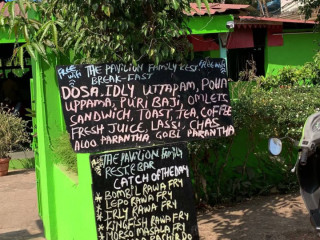 FREE wifi THE PAVILION FAMILY REST FREE WiFi
BREAK-FAST
DOSA, IDLY, UTTAPAM, POHA
UPPAMA, PURI BAJI, OMLETS
SANDWICH, TOAST, TEA, COFFEE
FRESH JUICE, LASSI, CHAS
ALOO PARANTHA, GOBI PARANTHA
THE PAVILION FAMILY
REST & BAR
CATCH OF THE DAY
* BOMBIL RAWA FRY
* LEPO RAWA FRY
* IRLY RAWA FRY
* KINGFISH RAWA FRY
* MORSO MASALA FRY